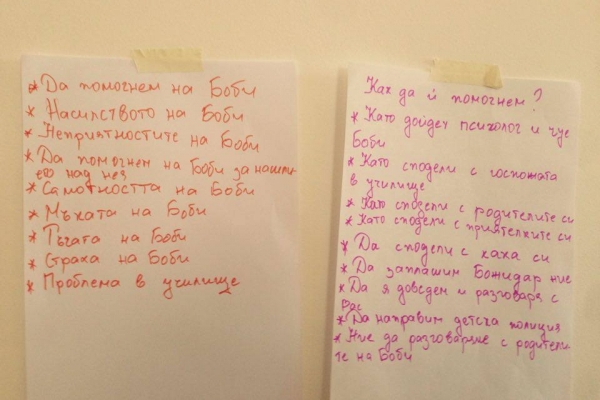 * Да помогнем на Боби
* Насилството на Боби
* Неприятностите на Боби
* Да помогнем на Боби за насили-
ето над нея
* Самотността на Боби
* Мъката на Боби
* Тъгата на Боби
* Страха на Боби
* Проблема в училище
Как да ѝ помогнем?
* Като дойдеч психолог и чуе
Боби
* Като сподели с госпожата
в училище
* Като сподели с родителите си
* Като сподели с приятелките си
* Да сподели с кака си
* Да заплашим Божидар ние
* Да я доведем и разговаря с
вас
* Да направим детска полиция
* Ние да разговаряме с родители-
те на Боби